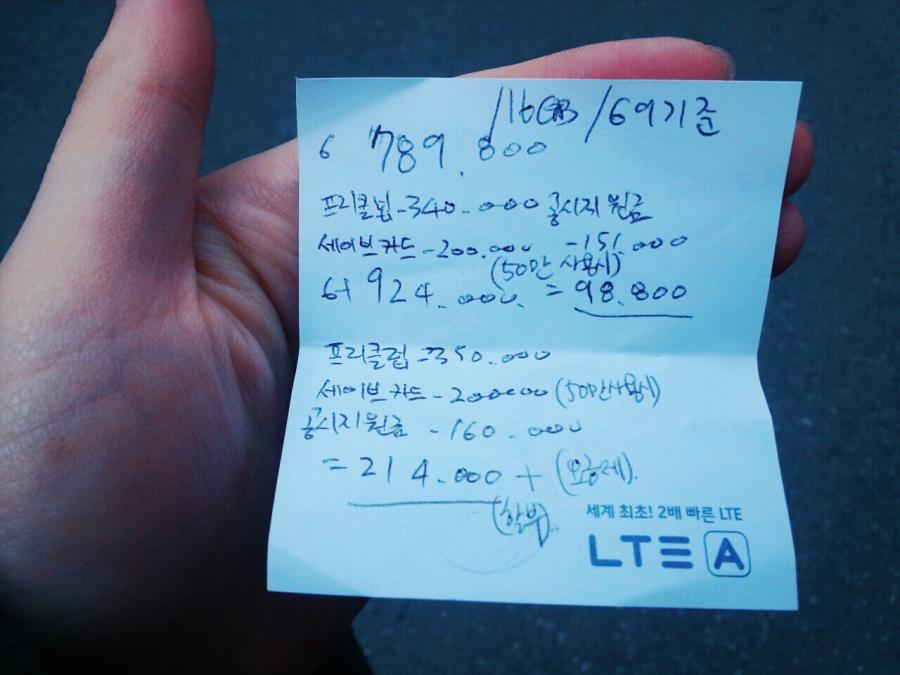 /16GB/69기준
6 789.800
프리클럽 -340.000 공시지원금
세이브카드 -200.000 -151.000
(50만 사용시)
6+ 924.000. = 98.800
프리클럽 -350.000
세이브카드 -200000 (50만사용시)
공시지원금 -160.000
= 214.000 + (요금제).
(할부).
세계 최초! 2배 빠른 LTE
LTE A